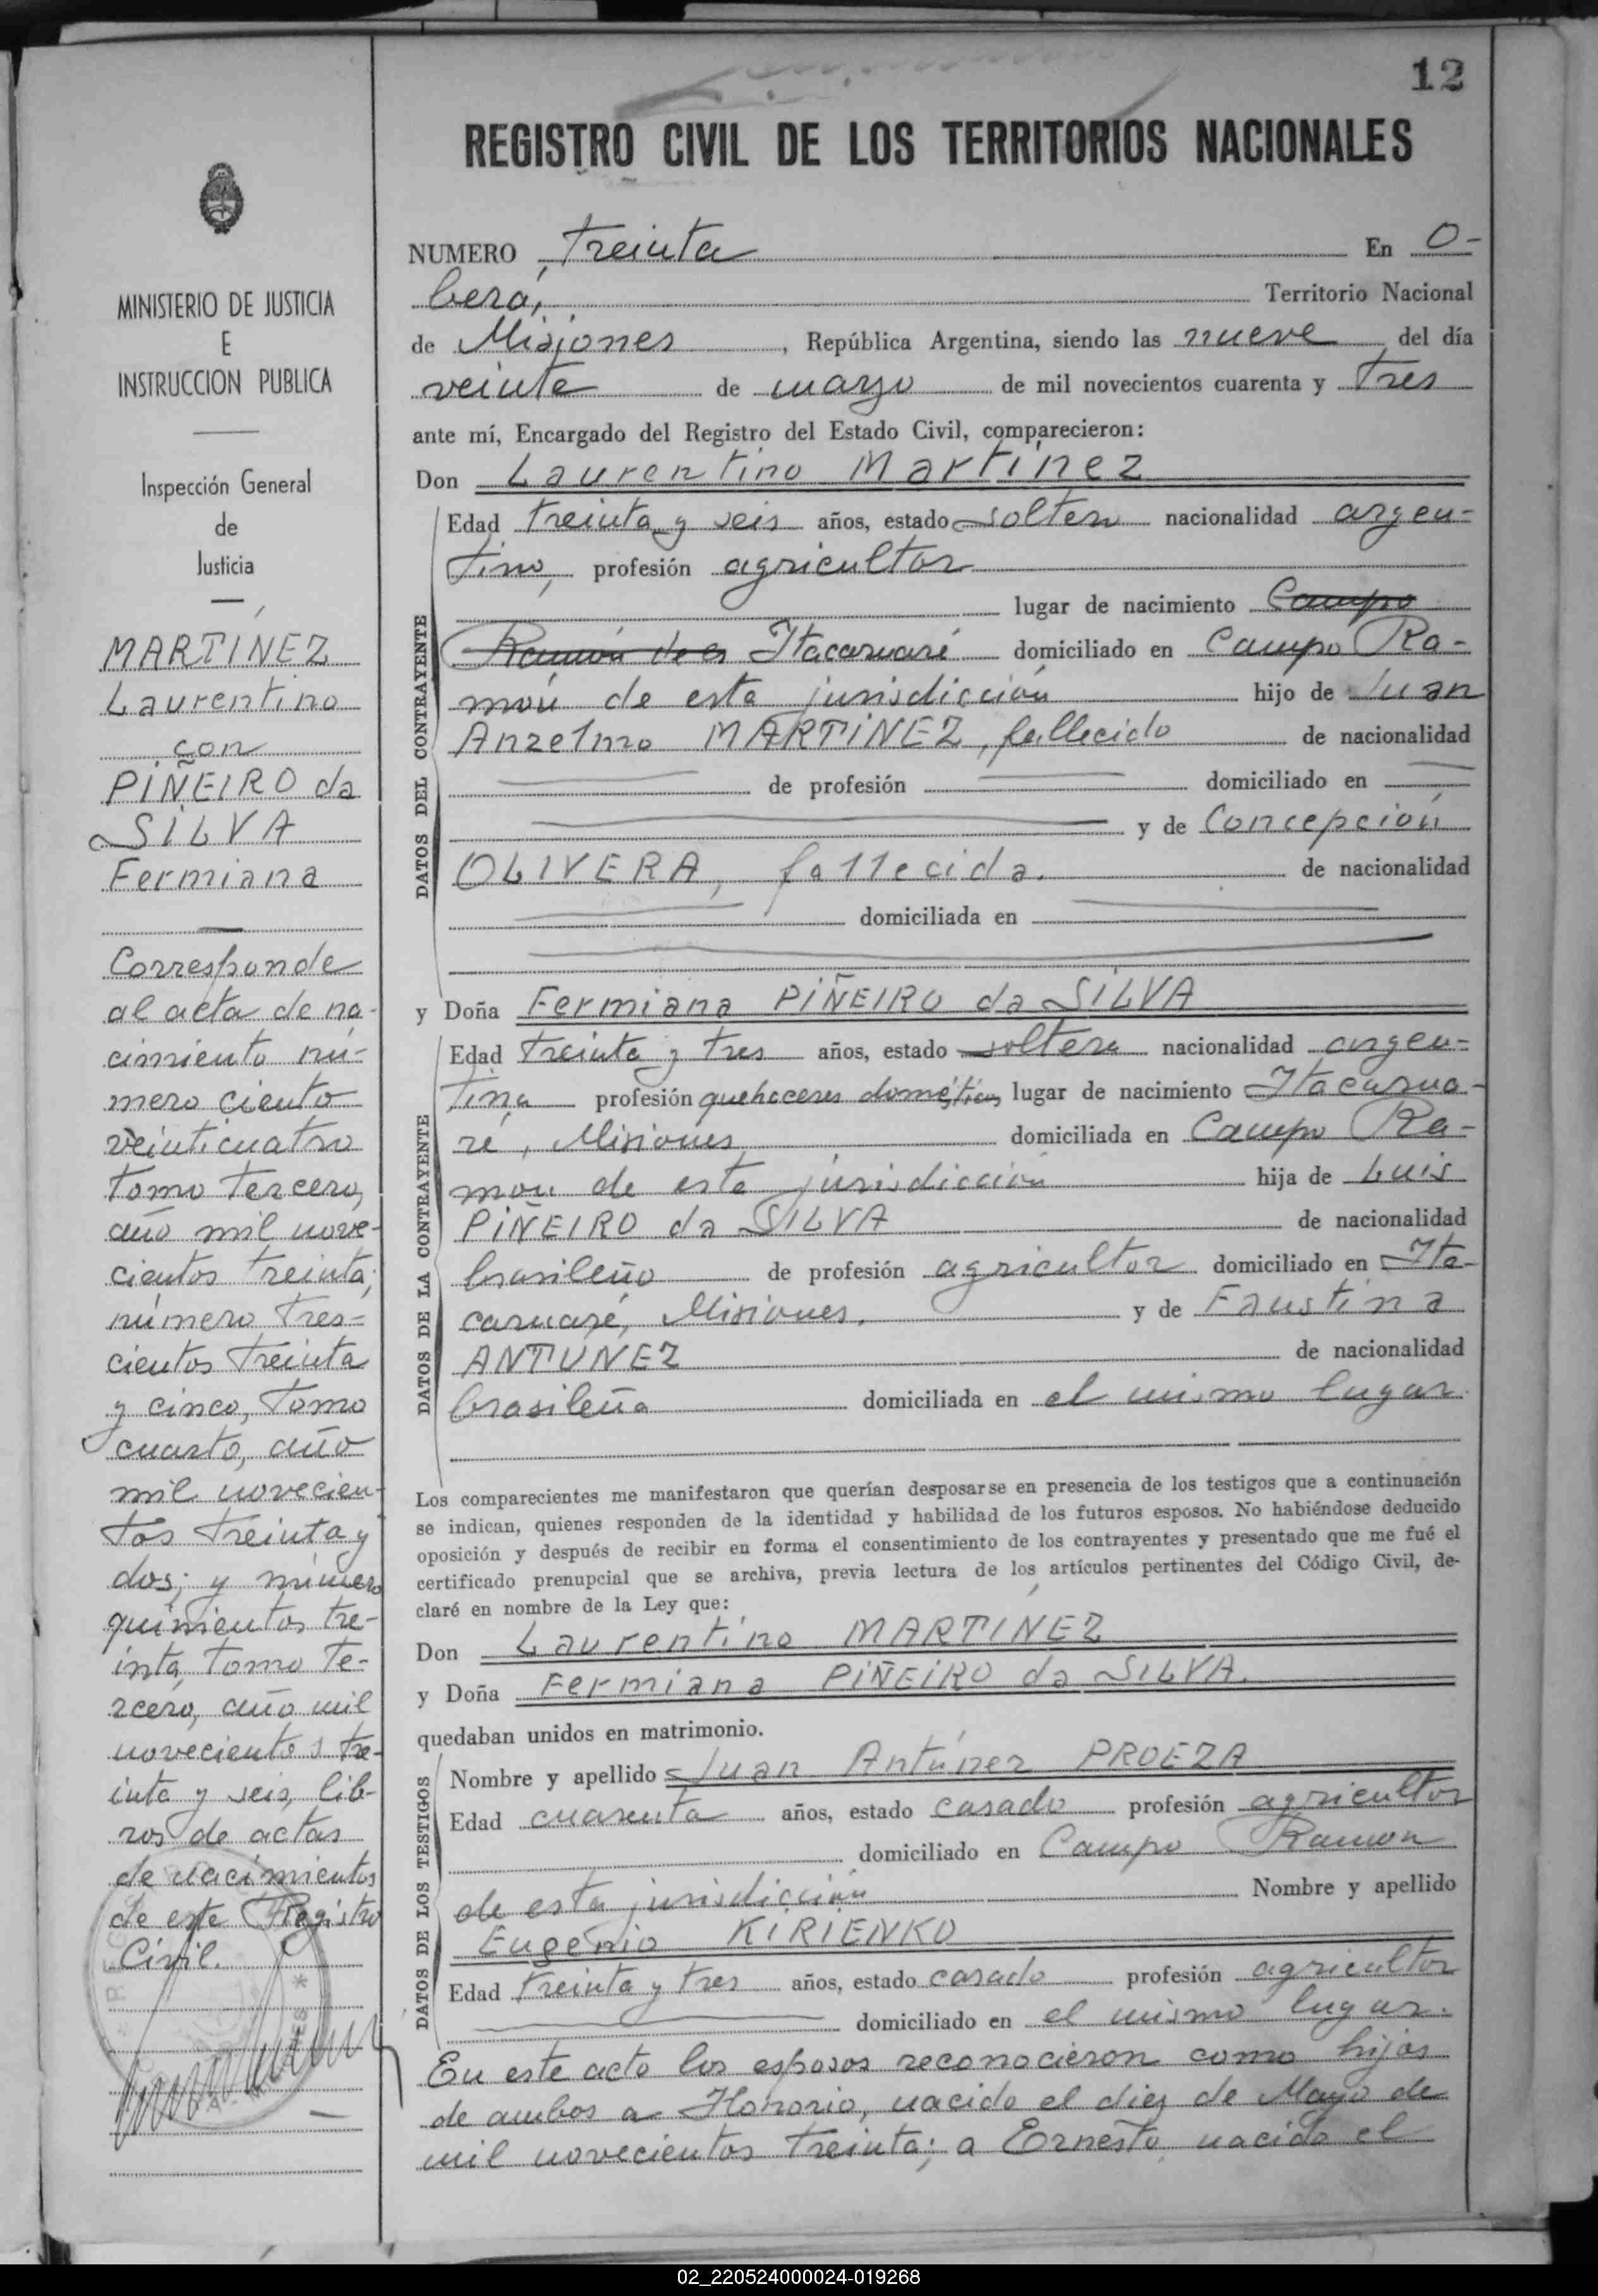 12
REGISTRO CIVIL DE LOS TERRITORIOS NACIONALES
MINISTERIO DE JUSTICIA
E
INSTRUCCION PUBLICA
Inspección General
de
Justicia
MARTÍNEZ
Laurentino
con
PIÑEIRO da
SILVA
Fermiana
Corresponde
al acta de na-
cimiento nú-
mero ciento
veinticuatro
Tomo Tercero,
año mil nove-
cientos treinta;
número Tres-
cientos treinta
y cinco, Tomo
cuarto, año
mil novecien-
tos treinta y
dos; y número
quinientos tre-
inta, Tomo Te-
rcero, año mil
novecientos tre-
inta y seis, lib-
ros de actas
de nacimientos
de este Registro
Civil.
NUMERO Treinta En O-
berá, Territorio Nacional
de Misiones, República Argentina, siendo las nueve del día
veinte de marzo de mil novecientos cuarenta y Tres
ante mí, Encargado del Registro del Estado Civil, comparecieron:
Don Laurentino Martínez
DATOS DEL CONTRAYENTE
Edad Treinta y seis años, estado soltero nacionalidad argen-
tino, profesión agricultor
lugar de nacimiento Campo
Ramón de es Itacaruaré domiciliado en Campo Ra-
món de esta jurisdicción hijo de Juan
Anzelmo MARTÍNEZ, fallecido de nacionalidad
de profesión domiciliado en
y de Concepción
OLIVERA, fallecida. de nacionalidad
domiciliada en
y Doña Fermiana PIÑEIRO da SILVA
DATOS DE LA CONTRAYENTE
Edad Treinta y tres años, estado soltera nacionalidad argen-
tina profesión quehaceres dométicos lugar de nacimiento Itacarua-
ré, Misiones domiciliada en Campo Ra-
mon de esta jurisdicción hija de Luis
PIÑEIRO da SILVA de nacionalidad
brasileño de profesión agricultor domiciliado en Ita-
caruaré, Misiones. y de Faustina
ANTUNEZ de nacionalidad
brasileña domiciliada en el mismo lugar.
Los comparecientes me manifestaron que querían desposarse en presencia de los testigos que a continuación
se indican, quienes responden de la identidad y habilidad de los futuros esposos. No habiéndose deducido
oposición y después de recibir en forma el consentimiento de los contrayentes y presentado que me fué el
certificado prenupcial que se archiva, previa lectura de los artículos pertinentes del Código Civil, de-
claré en nombre de la Ley que:
Don Laurentino MARTÍNEZ
y Doña Fermiana PIÑEIRO da SILVA.
quedaban unidos en matrimonio.
DATOS DE LOS TESTIGOS
Nombre y apellido Juan Antúnez PROEZA
Edad cuarenta años, estado casado profesión agricultor
domiciliado en Campo Ramon
de esta jurisdicción Nombre y apellido
Eugenio KIRIENKO
Edad Treinta y tres años, estado casado profesión agricultor
domiciliado en el mismo lugar.
En este acto los esposos reconocieron como hijos
de ambos a Honorio, nacido el diez de Mayo de
mil novecientos treinta; a Ernesto nacido el
02_220524000024-019268